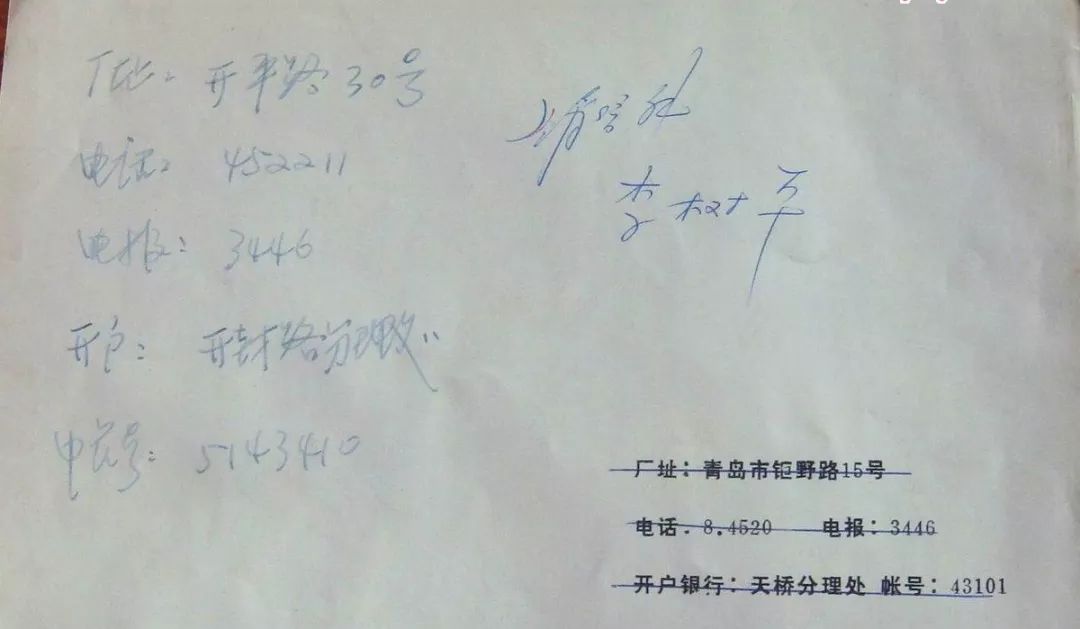 厂址：开平路30号
电话：452211
电报：3446
开户：开封路分理处
帐号：5143410
李树平
厂址：青岛市钜野路15号
电话.8.4520 电报：3446
开户银行：天桥分理处 帐号：43101